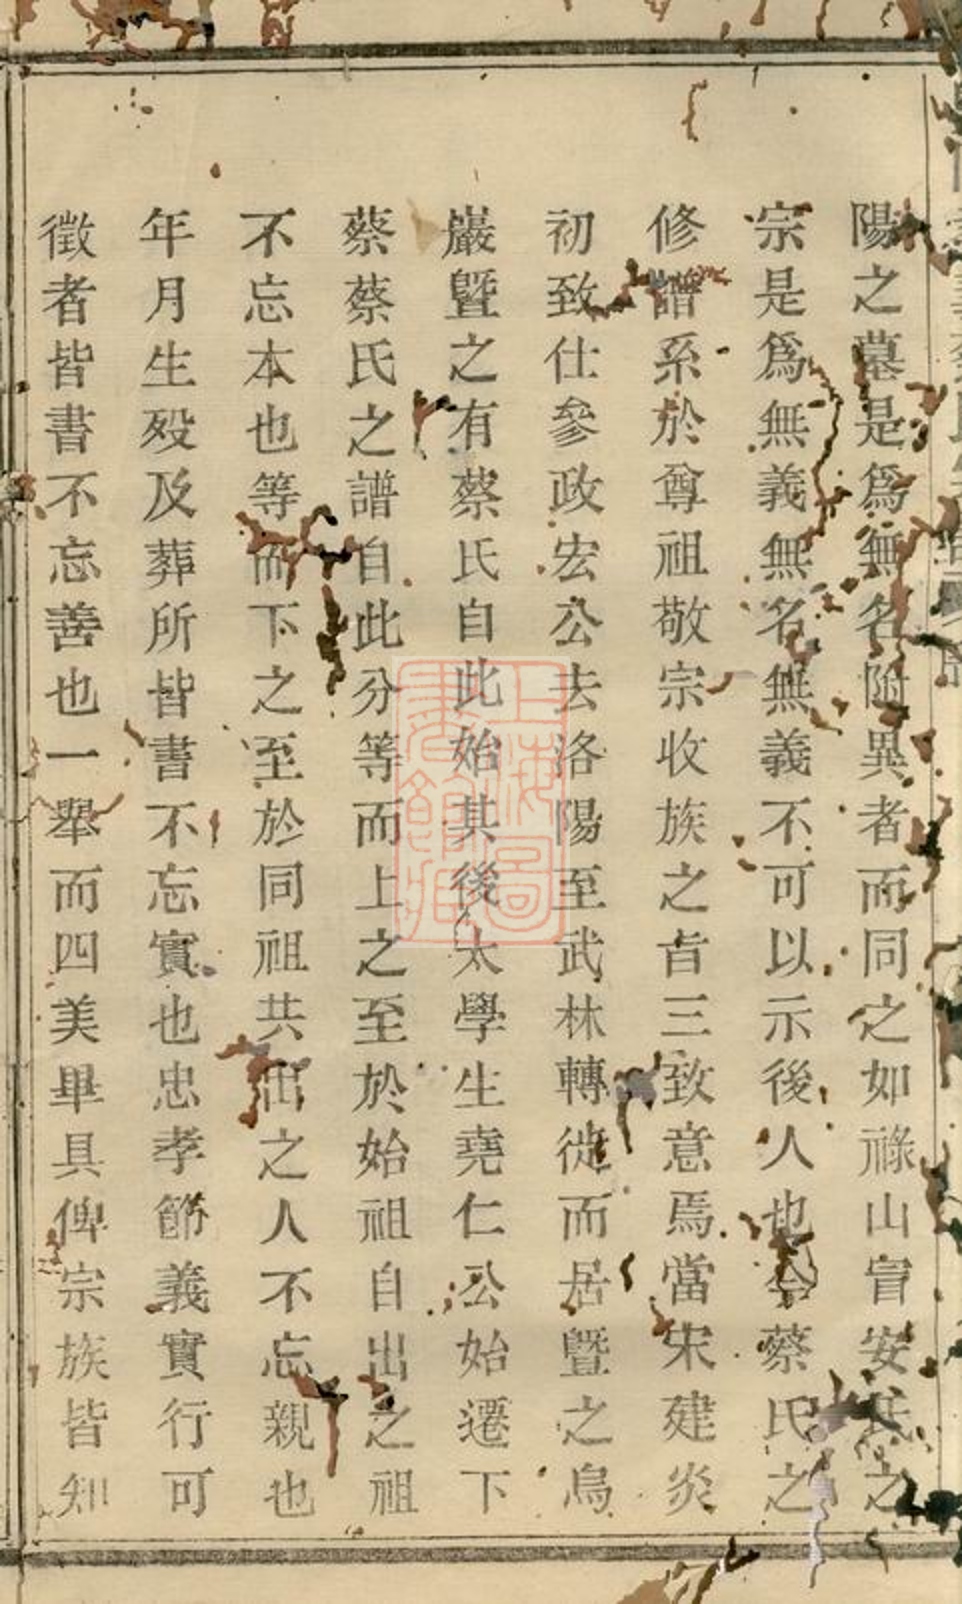 陽之墓是爲無名附異者而同之如祿山冒安氏之
宗是爲無義無名無義不可以示後人也今蔡氏之
修譜系於尊祖敬宗收族之旨三致意焉當宋建炎
初致仕參政宏公去洛陽至武林轉徙而居暨之鳥
巖暨之有蔡氏自此始其後太學生堯仁公始遷下
蔡蔡氏之譜自此分等而上之至於始祖自出之祖
不忘本也等而下之至於同祖共出之人不忘親也
年月生歿及葬所皆書不忘實也忠孝節義實行可
徵者皆書不忘善也一舉而四美畢具俾宗族皆知
上海圖書館藏